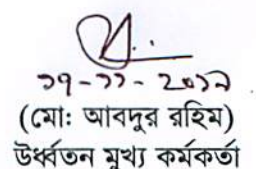 ১৭-১১-২০১৯
(মো: আবদুর রহিম)
উর্ধ্বতন মুখ্য কর্মকর্তা